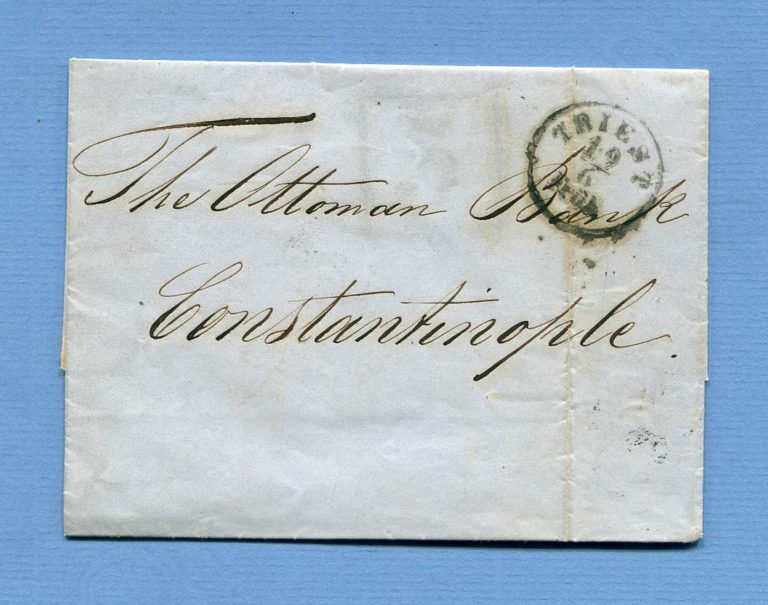 The Ottoman Bank
Constantinople.
TRIEST
19
6